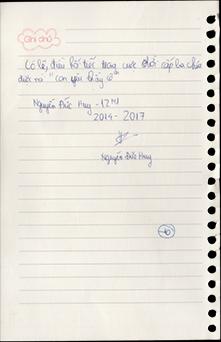 Ghi chú
Có lẽ, điều hối tiếc trong cuộc đời cấp ba chưa
được nói "con yêu thầy cô"
Nguyễn Đức Huy - 12
2014 - 2017
Nguyễn Đức Huy